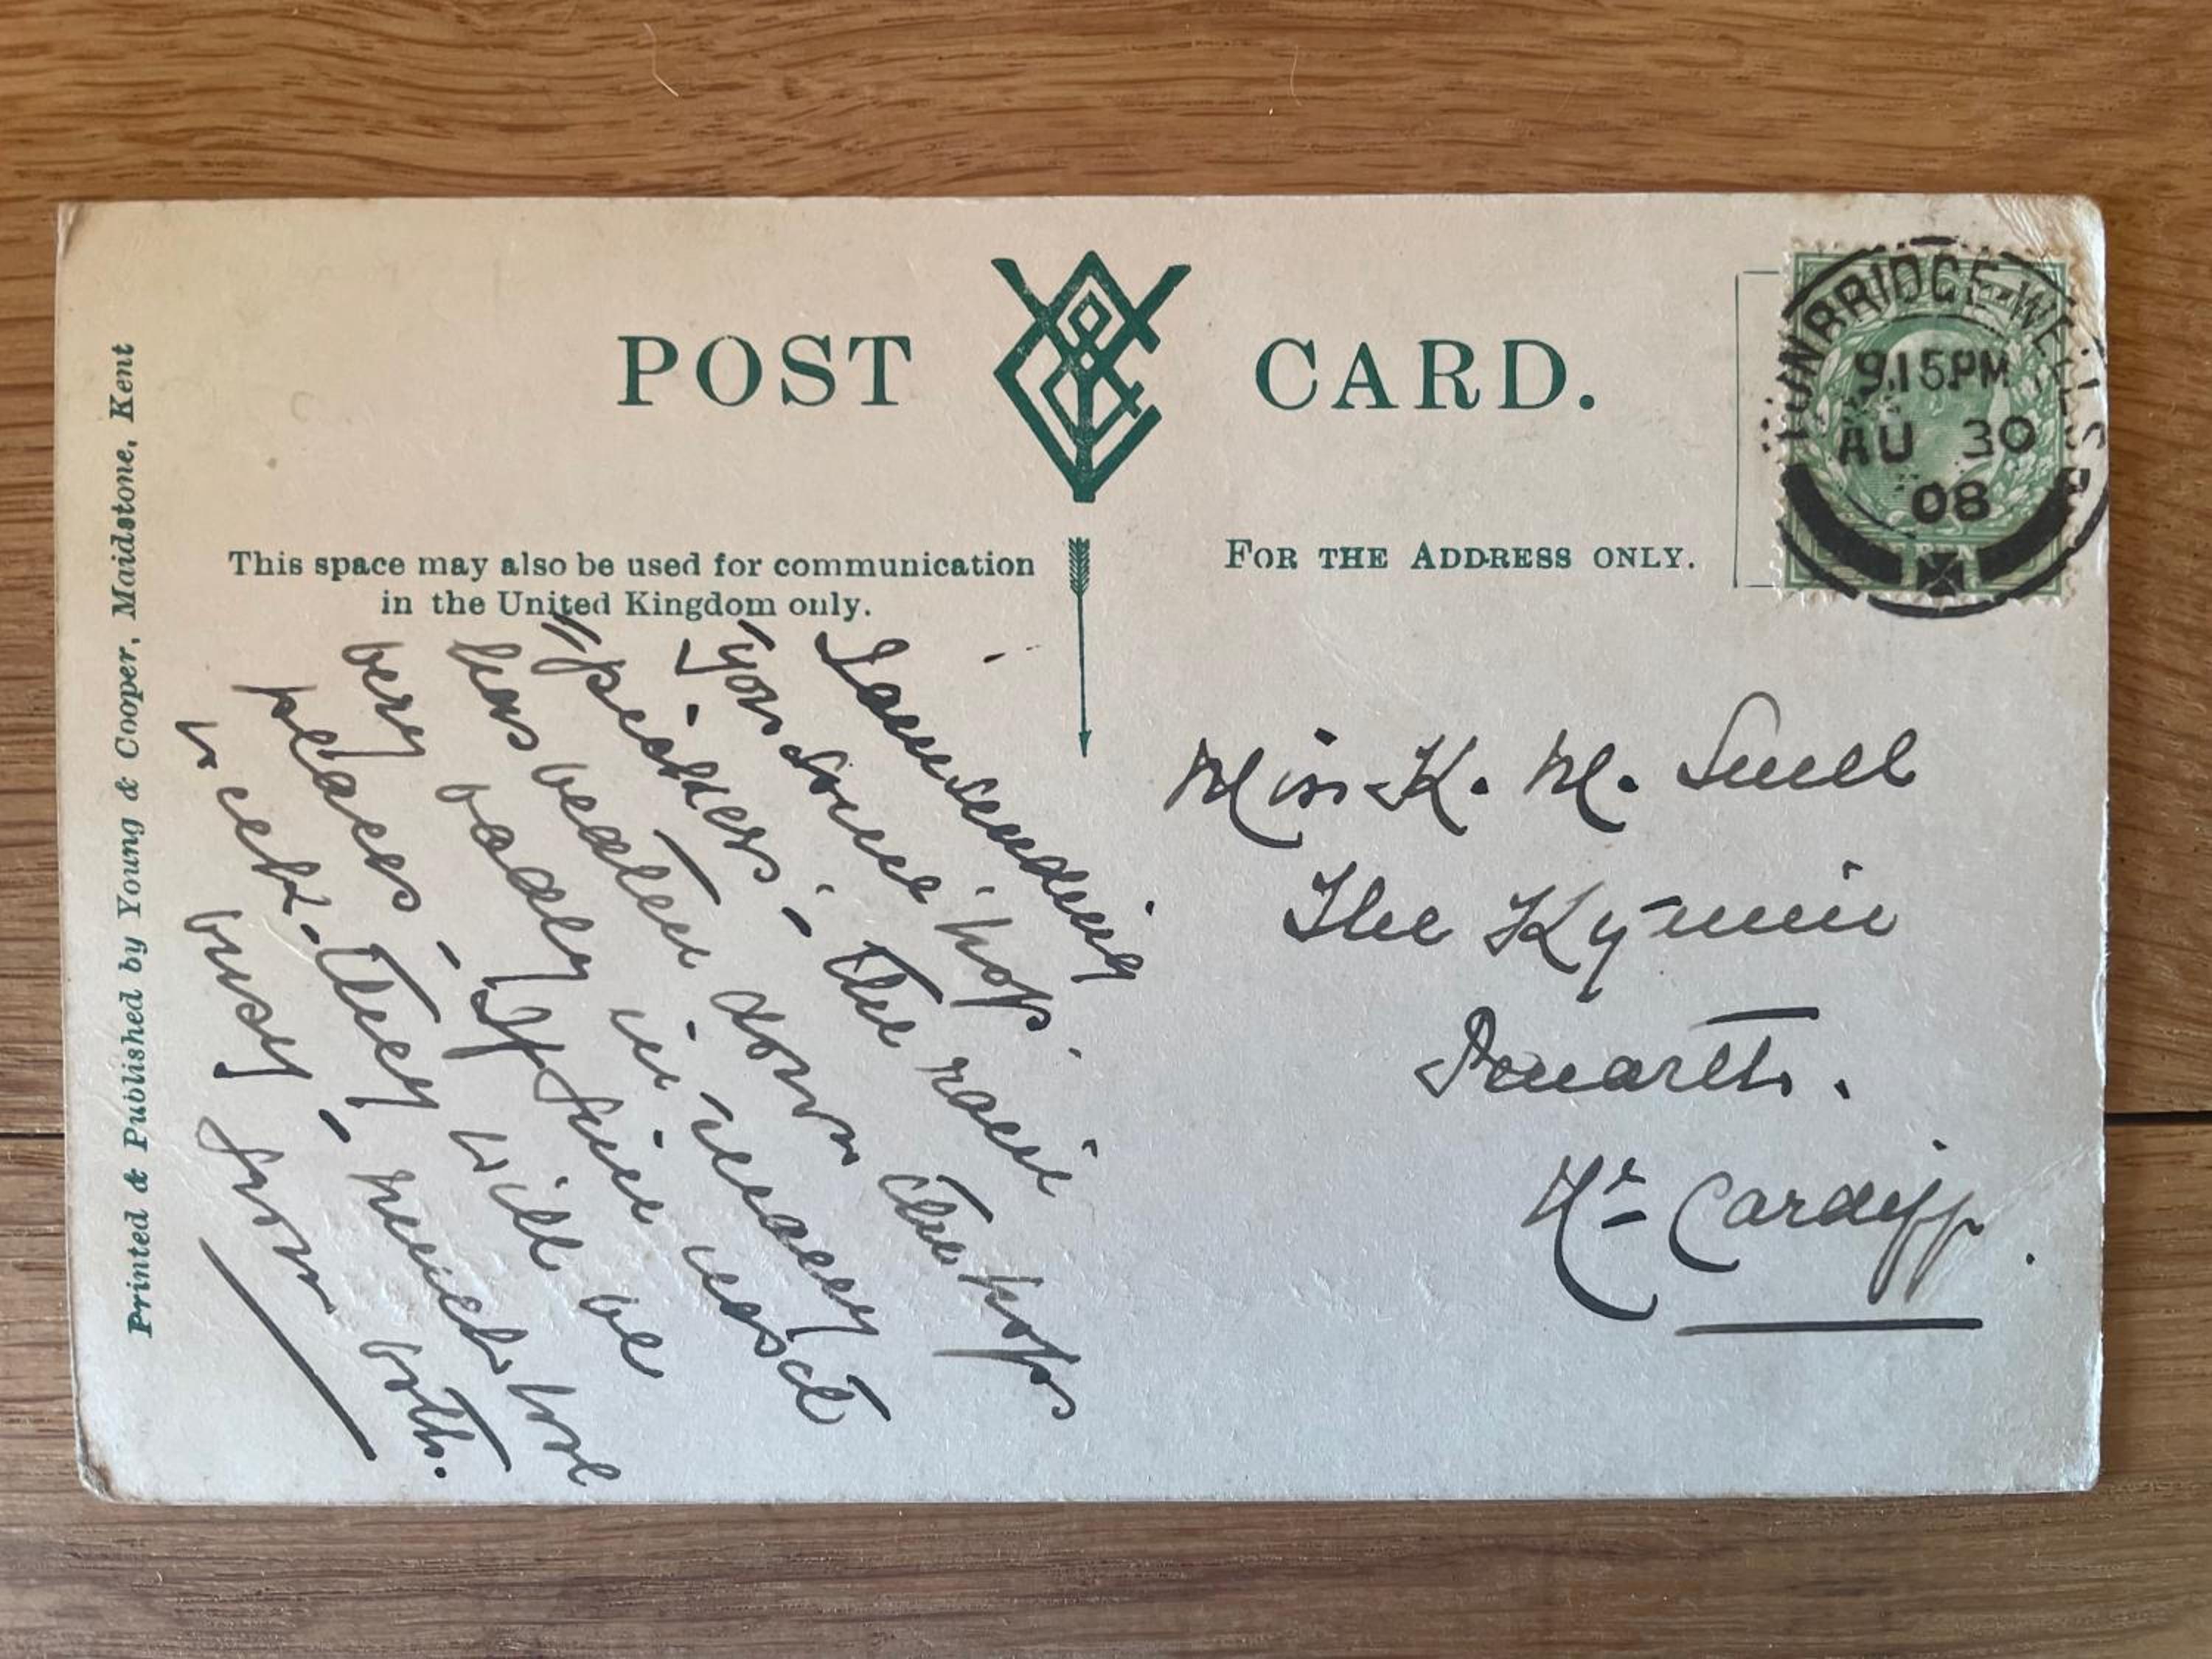 POST CARD.
This space may also be used for communication
in the United Kingdom only.
FOR THE ADDRESS ONLY.
Printed & Published by Young & Cooper, Maidstone, Kent
TUNBRIDGE-WELLS
9.15PM
AU 30
08
I am sending
you some hop-
pickers. - The rain
has beaten down the hops
very badly in many
places - If fine next
week - they will be
busy - much love
from both.
Miss K. M. Snell
The Kymin
Penarth.
Nr Cardiff.